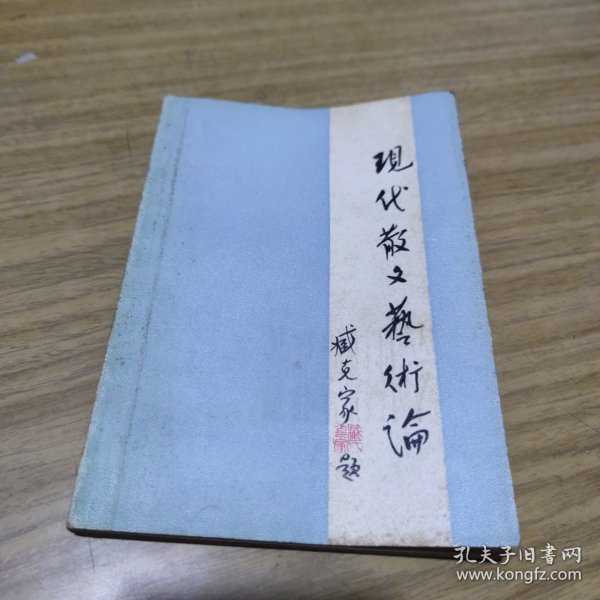 現代散文藝術論
臧克家
題
孔夫子旧书网
www.kongfz.com